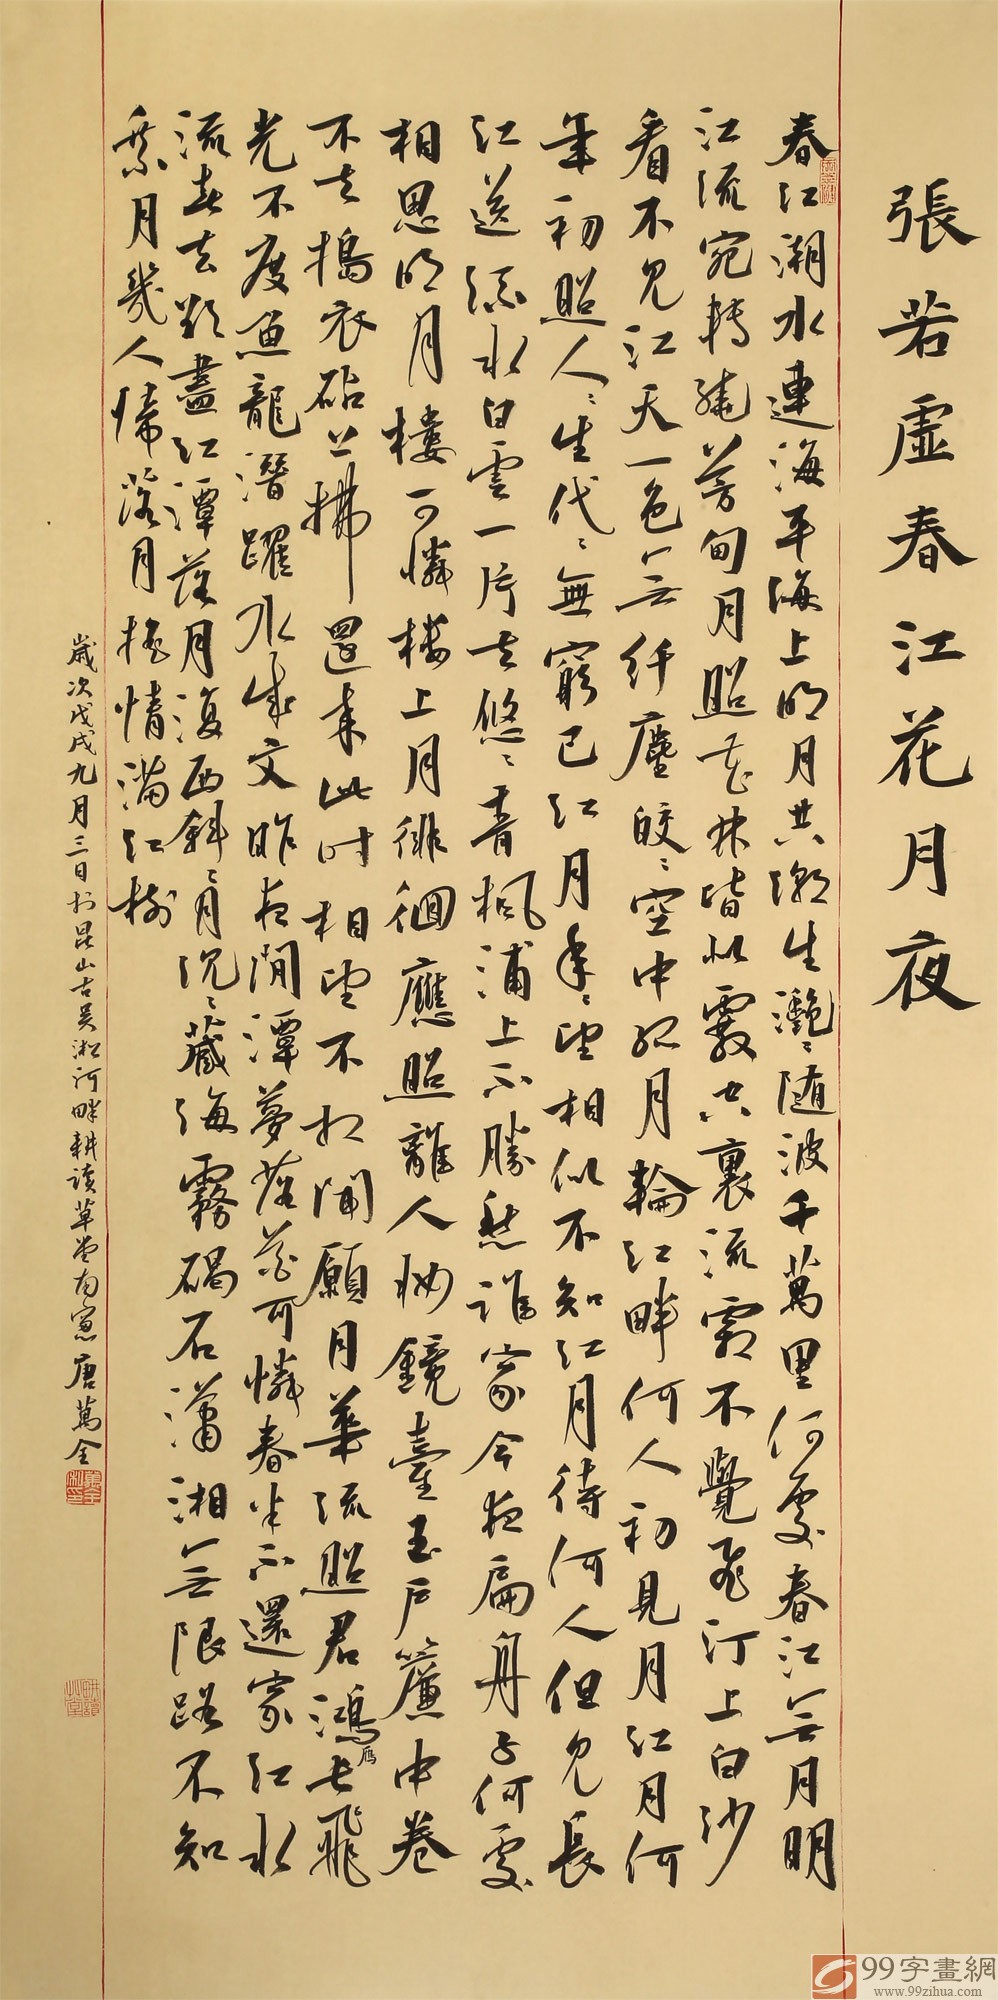 張若虛春江花月夜
春江潮水連海平海上明月共潮生灧〻随波千萬里何處春江無月明
江流宛轉繞芳甸月照花林皆似霰空裏流霜不覺飛汀上白沙
看不見江天一色無纤塵皎〻空中孤月輪江畔何人初見月江月何
年初照人〻生代〻無窮已江月年〻望相似不知江月待何人但見長
江送流水白雲一片去悠〻青楓浦上不勝愁誰家今夜扁舟子何處
相思明月樓可憐楼上月徘徊應照離人妝鏡臺玉户簾中卷
不去搗衣砧上拂還来此时相望不相闻願月華流照君鴻雁長飛
光不度魚龍潛躍水成文昨夜閒潭夢落花可憐春半不還家江水
流春去欲盡江潭落月復西斜〻月沉〻藏海霧碣石瀟湘無限路不知
乘月幾人帰落月摇情满江树
歲次戊戌九月三日於昆山古吴淞河畔耕读草堂南窗唐萬全
99字畫網
www.99zihua.com